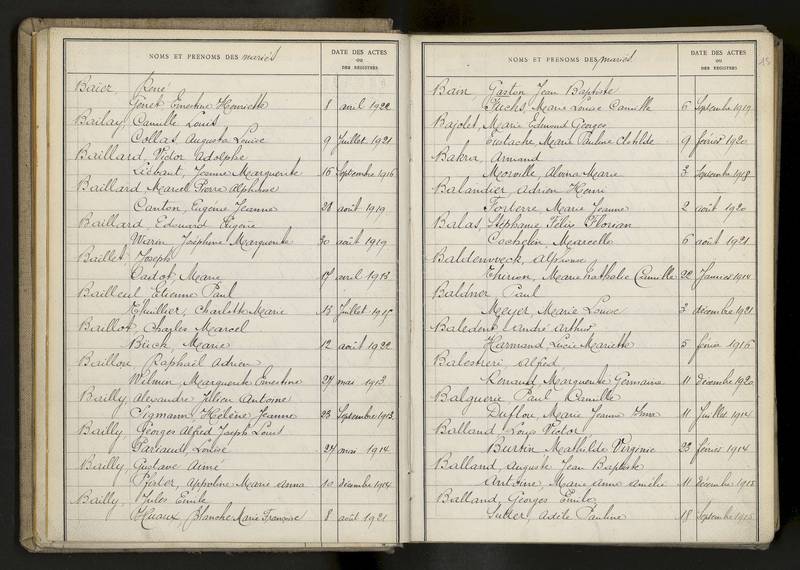 NOMS ET PRENOMS DES mariés
DATE DES ACTES
OU
DES REGISTRES
Baïer, René
Génet Ernestine Henriette 8 avril 1922
Bailay, Camille Louis
Collas, Augusta Louise 9 Juillet 1921
Baillard, Victor Adolphe
Liébaut, Jeanne Marguerite 16 Septembre 1916
Baillard Marcel Pierre Alphonse
Canton, Eugénie Jeanne 21 août 1919
Baillard, Edouard Eugène
Warin Joséphine Marguerite 30 août 1919
Baillet Joseph
Cadot, Marie 17 avril 1913
Bailleul Etienne Paul
Thuillier, Charlotte Marie 15 Juillet 1915
Baillot, Charles Marcel
Bück, Marie 12 août 1922
Raphaël Adrien
Wilmin, Marguerite Ernestine 24 mai 1913
Bailly, Alexandre Julien Antoine
Sigmann, Hélène Jeanne 23 Septembre 1913
Bailly, Georges Alfred Joseph Louis
Louise 27 mai 1914
Bailly, Gustave Aimé
Pfister, Appoline Marie Anna 10 décembre 1904
Bailly, Jules Emile
Huaux, Blanche Marie Françoise 8 août 1921
NOMS ET PRENOMS DES mariés
DATE DES ACTES
OU
DES REGISTRES
15
Bain, Gaston Jean Baptiste
Fuchs, Marie Louise Camille 6 Septembre 1919
Bajolet, Marie Edmond Georges
Eustache Marie Pauline Clotilde 9 février 1920
Bakra, Armand
Morville, Alvina Marie 3 Septembre 1918
Balandier, Adrien Henri
Forterre, Marie Jeanne 2 août 1920
Balas, Stéphane Félix Florian
Cochelin, Marcelle 6 août 1921
Baldenweck, Alphonse
Thirion, Marie Nathalie Camille 22 Janvier 1914
Baldner Paul
Meyer, Marie Louise 3 décembre 1921
Baledent André Arthur
Harmand Lucie Mariette 5 février 1916
Balestrieri, Alfred
Renaud, Marguerite Germaine 11 décembre 1920
Balguerie Paul Camille
Duflou, Marie Jeanne Irma 11 Juillet 1914
Balland Louis Victor
Burtin Mathilde Virginie 23 février 1914
Balland, Auguste Jean Baptiste
Antoine, Marie Anne Amélie 11 décembre 1915
Balland, Georges Emile
Sutter, Adèle Pauline 18 Septembre 1915